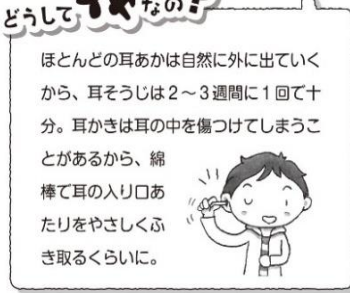 どうして なの?
ほとんどの耳あかは自然に外に出ていく
から、耳そうじは2〜3週間に1回で十
分。耳かきは耳の中を傷つけてしまうこ
とがあるから、綿
棒で耳の入り口あ
たりをやさしくふ
き取るくらいに。